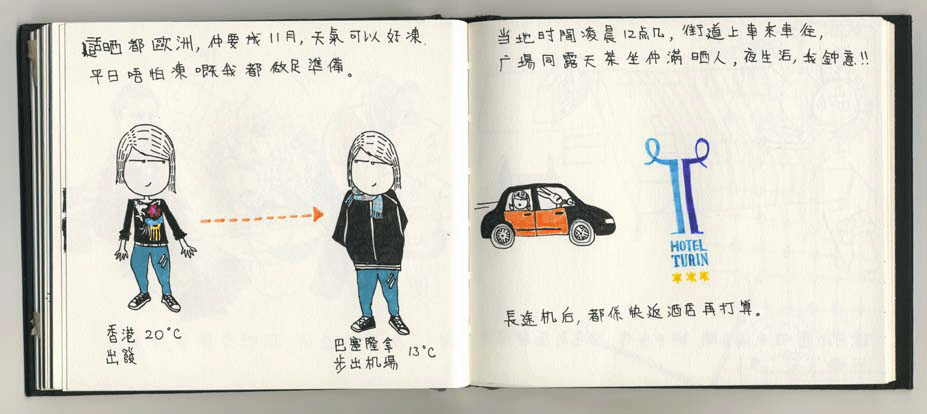 話晒都歐洲, 仲要成11月, 天氣可以好凍
平日唔怕凍嘅我都做足準備。
香港 20°C
出發
巴塞隆拿
步出机場 13°C
当地时间凌晨12点几, 街道上車來車往,
广場同露天茶坐仲滿晒人, 夜生活, 我鈡意!!
HOTEL
TURIN
長途机后, 都係快返酒店再打算。